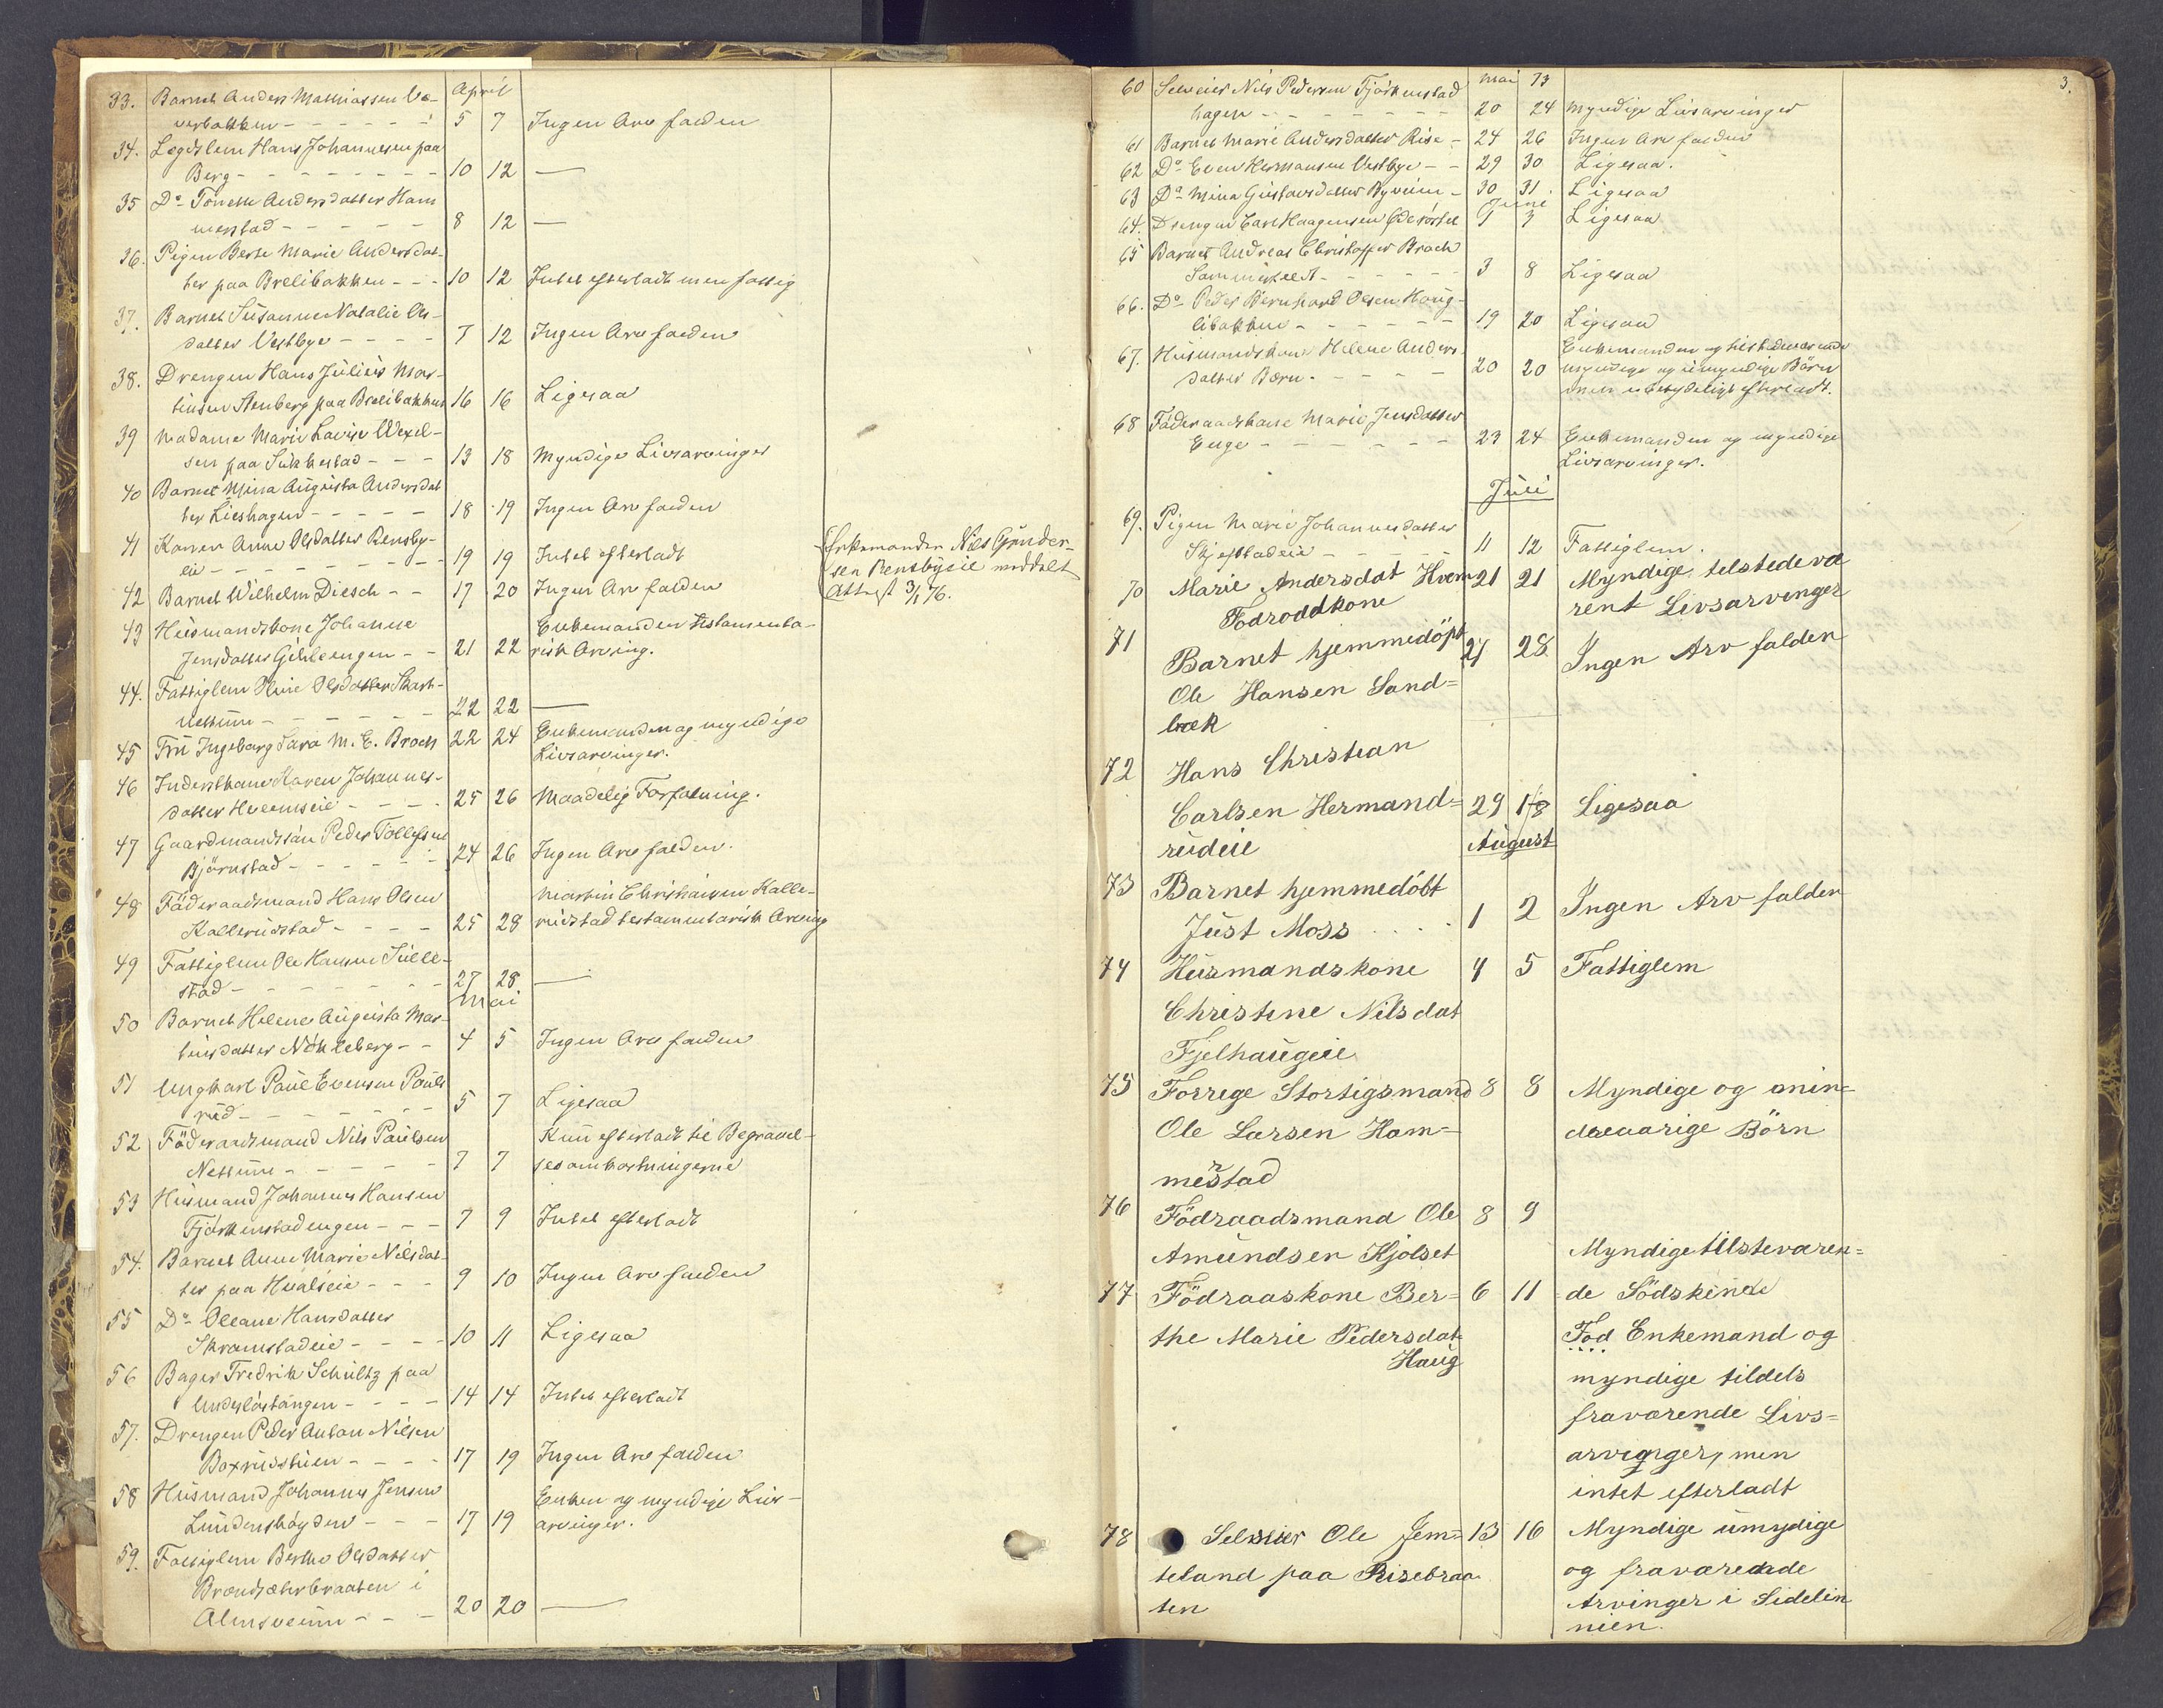 April
33. Barnet Anders Mathiassen Væ-
verbakken - - - - - - 5 7 Ingen Arv falden
34. Lægdslem Hans Johannesen paa
Berg - - - - - - - - 10 12 —
35 Do Tonette Andersdatter Ham
merstad - - - - - 8 12 —
36. Pigen Berte Marie Andersdat-
ter paa Brelibakken - - - 10 12 Intet efterladt men fattig
37. Barnet Susanne Natalie Ols-
datter Vestbye - - - - 7 12 Ingen Arv falden
38. Drengen Hans Julius Mar-
tinsen Stenberg paa Brelibakken 16 16 Ligesaa
39 Madame Marie Lovise Wexel-
sen paa Sukkestad - - - 13 18 Myndige Livsarvinger
40 Barnet Mina Augusta Andersdat
ter Lieshagen - - - - - 18 19 Ingen Arv falden
41 Konen Anne Olsdatter Rensby-
eie - - - - - - - - - 19 19 Intet efterladt
Enkemanden Nils Gunder-
sen Rensbyeie meddelt
Attest 3/1 76.
42 Barnet Wilhelm Diesch - - 17 20 Ingen Arv falden
43 Husmandskone Johanne
Jensdatter Gihleengen - - 21 22 Enkemanden testamenta-
risk Arving.
44. Fattiglem Olsdatter
Nettum - - - - - - 22 22 —
45 Fru Ingeborg Sara M. E. Broch 22 24 Enkemanden og myndige
Livsarvinger.
46 Inderstkone Karen Johannes-
datter Hvemseie - - - - 25 26 Maadelig Forfatning.
47 Gaardmandssøn Peder Tollefsen
Björnstad - - - - - - 24 26 Ingen Arv falden.
48 Föderaadsmand Hans Olsen
Kallerudstad - - - - 25 28 Martin Christiansen Kalle-
rudstad testamentarisk Arving
49 Fattiglem Ole Hansen Sulle-
stad - - - - - - - 27 28. —
Mai
50 Barnet Helene Augusta Mar-
tinsdatter Nökleberg - - 4 5 Ingen Arv falden
51 Ungkarl Paul Evensen Pauls
rud - - - - - - - 5 7 Ligesaa
52 Föderaadsmand Nils Paulsen
Nettum - - - - - 7 7 Kun efterladt til Begravel-
sesomkostningerne
53 Husmand Johannes Hansen
Fjörkenstadengen - - - 7 9 Intet efterladt
54. Barnet Anne Marie Nilsdat-
ter paa Hvalseie - - - 9 10 Ingen Arv falden
55 Do Oleane Hansdatter
Skramstadeie - - - - 10 11 Ligesaa
56 Bager Fredrik Schultz paa
- - - - 14 14 Intet efterladt
57. Drengen Peder Anton Nilsen
Boxrudstuen - - - - 17 19 Ingen Arv falden
58 Husmand Johannes Jensen
Lundenshögden - - - 17 19 Enken og myndige Livs-
arvinger.
59. Fattiglem Berthe Olsdatter
Brændsæterbraaten i
Almsveiun - - - 20 20 —
3.
Mai 73
60 Selveier Nils Pedersen Fjörkenstad
hagen - - - - - - - 20 24 Myndige Livsarvinger
61 Barnet Marie Andersdatter Rise - 24 26 Ingen Arv falden
62 Do Even Hermansen Vestbye - - 29 30 Ligesaa.
63 Do Mina Gustavsdatter Byveien - 30 31. Ligesaa
Juni
64. Drengen Carl Haagensen 1 3 Ligesaa
65 Barnet Andreas Christoffer Broch
- - - - - - 3 8 Ligesaa
66. Do Peder Bernhard Olsen Haug-
libakken - - - - - - 19 20 Ligesaa
67. Husmandskone Helene Anders-
datter Bærn. - - - - - 20 20 Enkemanden og tilstedeværende
myndige og umyndige Börn
men ubetydeligt efterladt.
68 Föderaadskone Marie Jensdatter
Enge - - - - - - - 23 24 Enkemanden og myndige
Livsarvinger.
Juli
69. Pigen Marie Johannesdatter
Skjefstadeie - - - - - 11 12 Fattiglem.
70 Marie Andersdat Hvem 21 21 Myndige tilstedevæ
Fodroddkone rent Livsarvinger
71 Barnet hjemmedöpt 27 28 Ingen Arv falden
Ole Hansen Sand=
bæk
72 Hans Christian
Carlsen Hermand= 29 1/8 Ligesaa
rudeie
August
73 Barnet hjemmedöbt
Just Moss . . . . 1 2 Ingen Arv falden
74 Husmandskone 4 5 Fattiglem
Christine Nilsdat
Fjelhaugeie
75 Forrege Stortigsmand 8 8 Myndige og min=
Ole Larsen Ham= dreaarige Börn
merstad
76 Födraadsmand Ole 8 9
Amundsen Kjolset Myndige tilsteværen=
77 Födraaskone Ber= 6 11 de Södskende
the Marie Pedersdat Fod Enkemand og
Haug
myndige tildels
fraværende Livs=
arvinger, men
intet efterladt
78 Selveier Ole Jem= 13 16 Myndige umydige
teland paa Risebraa og fraværende
ten Arvinger i Sidelin
nien.